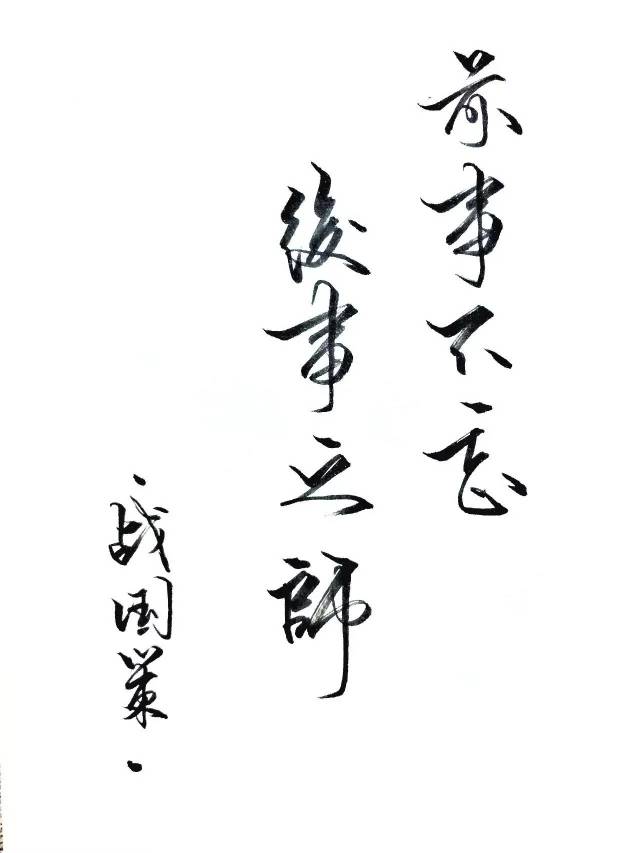 前事不忘
後事之師
·战国策·